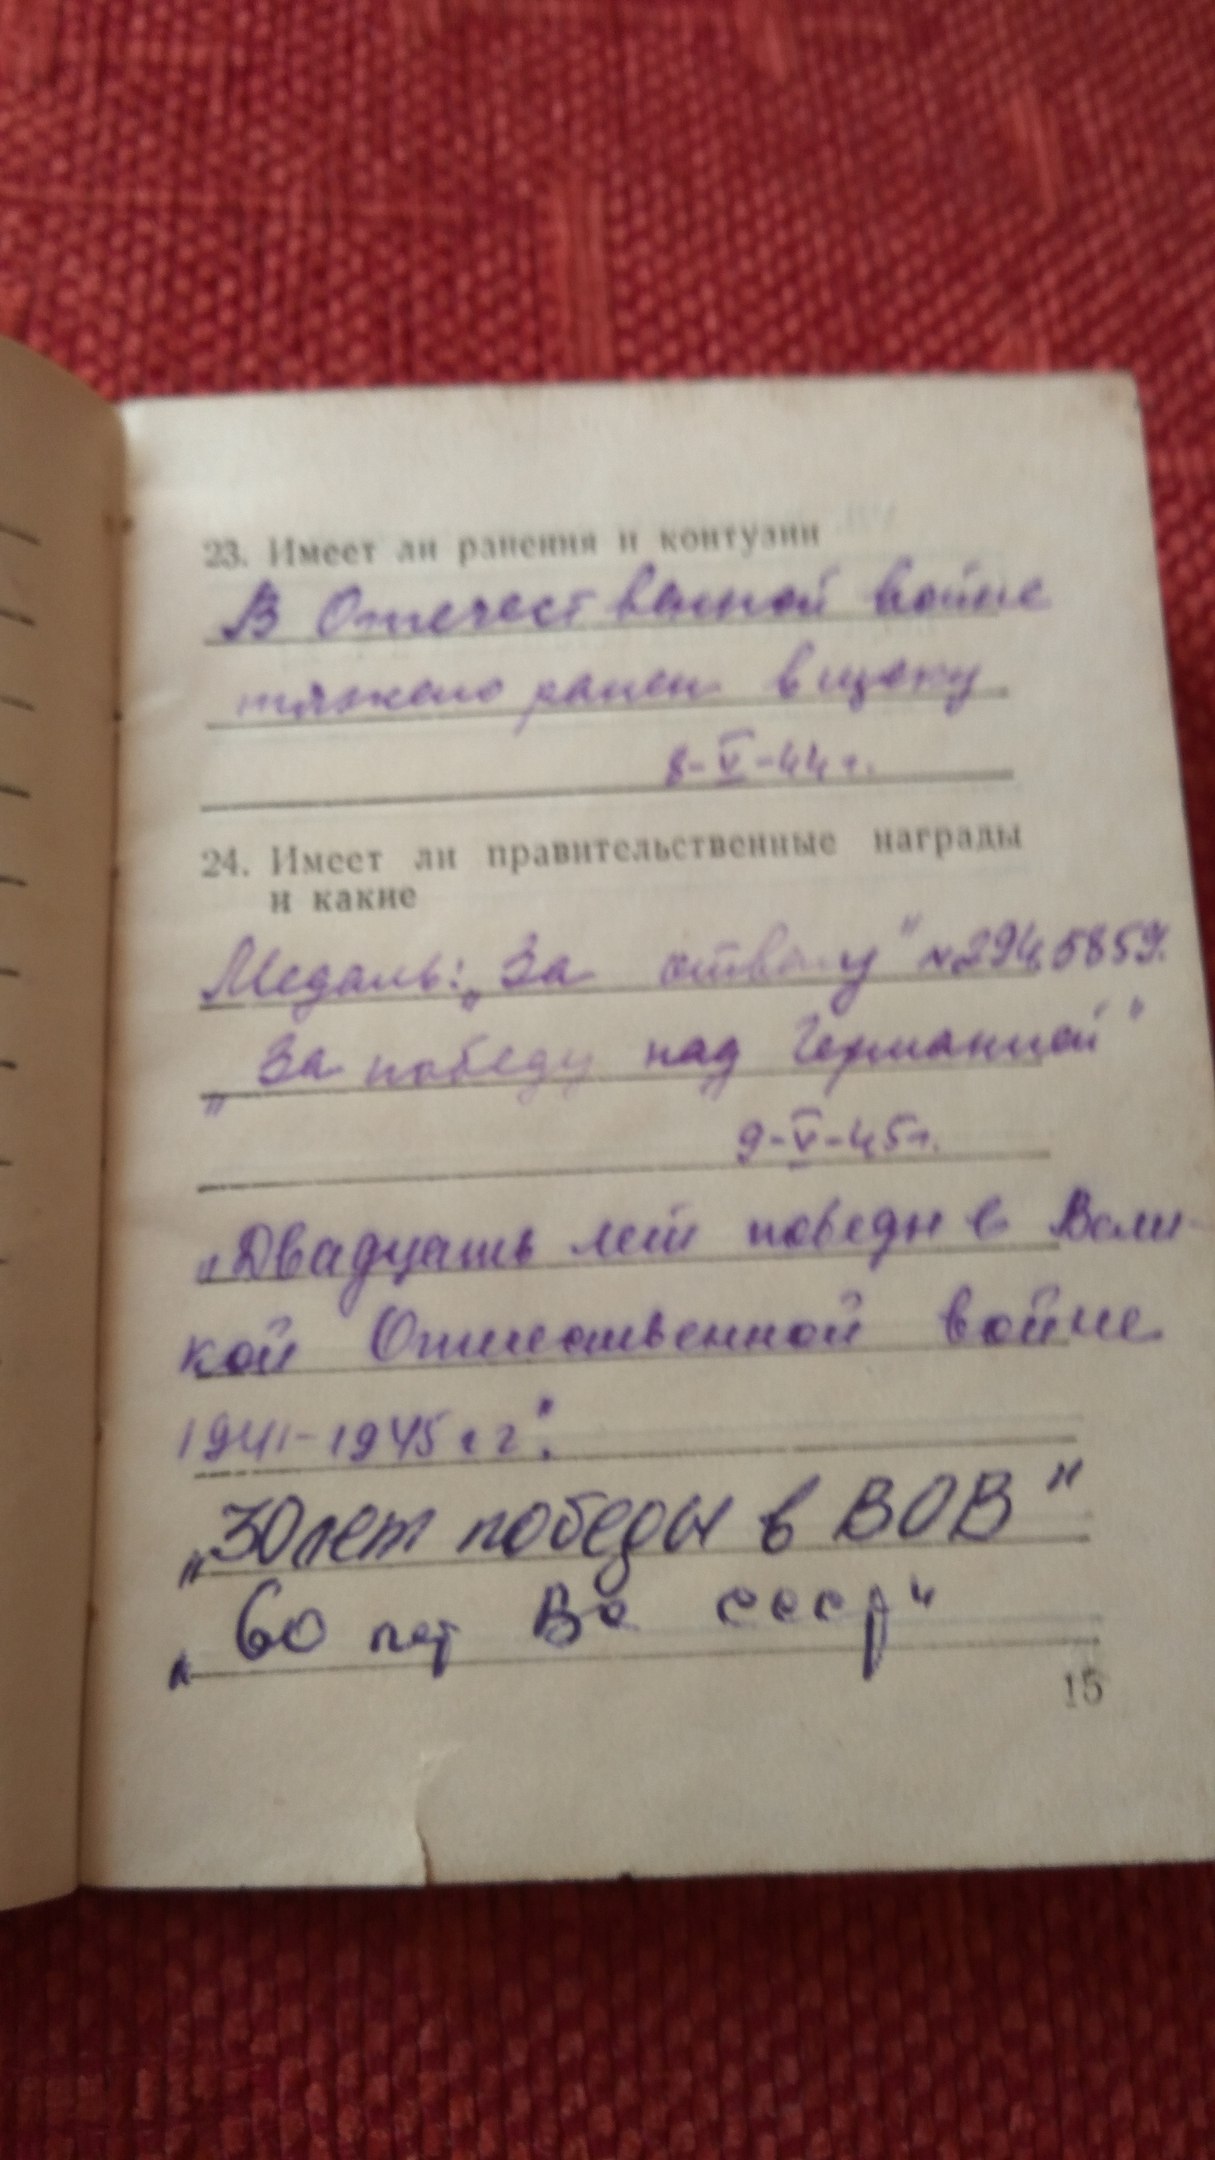 23. Имеет ли ранения и контузии
В Отечественной войне
тяжело ранен в щеку
8-V-44 г.
24. Имеет ли правительственные награды
и какие
Медаль: „За отвагу" № 2945859.
„За победу над Германией"
9-V-45 г.
„Двадцать лет победы в Вели-
кой Отечественной войне
1941-1945 гг".
„30 лет победы в ВОВ"
„60 лет Вс ссср"
15